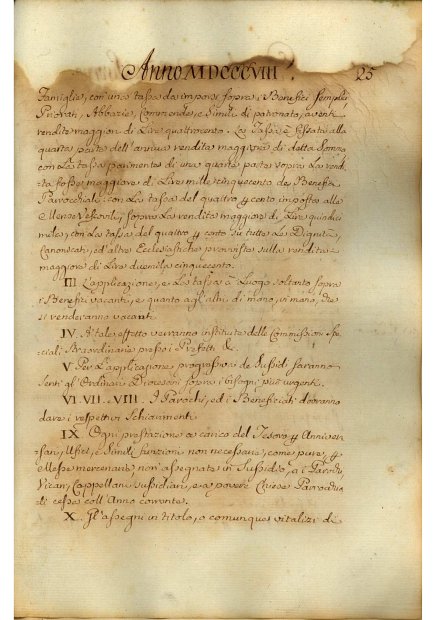 Anno MDCCCVIII. 25
Famiglie, con una tassa da imporsi sopra i Benefici semplici,
Priorati, Abbazie, Commende, e Simili di patronato, aventi
rendite maggiori di Lire quattrocento. La Tassa è fissata alla
quarta parte dell'annua rendita maggiore di detta Somma
con La tassa parimente di una quarta parte sopra La rendi-
ta fosse maggiore di Lire mille cinquecento de Benefizi
Parrocchiali; con La tassa del quattro p cento imposta alle
Mense Vescovili, sopra La rendita maggiore di Lire quindici
mila; con La tassa del quattro p cento su tutte Le Dignità,
Canonicati, ed altre Ecclesiastiche provviste sulla rendita
maggiore di Lire duemila cinquecento.
III L'applicazione, e La tassa à Luogo soltanto sopra
i Benefizi vacanti, e quanto agl'altri di mano, in mano, che
si renderanno vacanti.
IV. A tale effetto verranno instituite delle Commissioni spe-
ciali Straordinarie presso i Prefetti &.
V Per L'applicazione progressiva de Sussidi saranno
Senti gl'Ordinari Diocesani sopra i bisogni più urgenti.
VI. VII. VIII. I Parochi, ed i Beneficiati dovranno
dare i respettivi Schiarimenti
IX Ogni prestazione a carico del Tesoro p Anniver-
sari, Ufizi, e Simili funzioni non necessarie, come pure, p
Messe mercenarie non assegnate in Sussidio, a i Parochi
Vicari, Cappellani Sussidiari, e a povere Chiese Parrocchiali
di cessa coll'Anno corrente.
X. Gl'assegni in titolo, o comunque vitalizi di